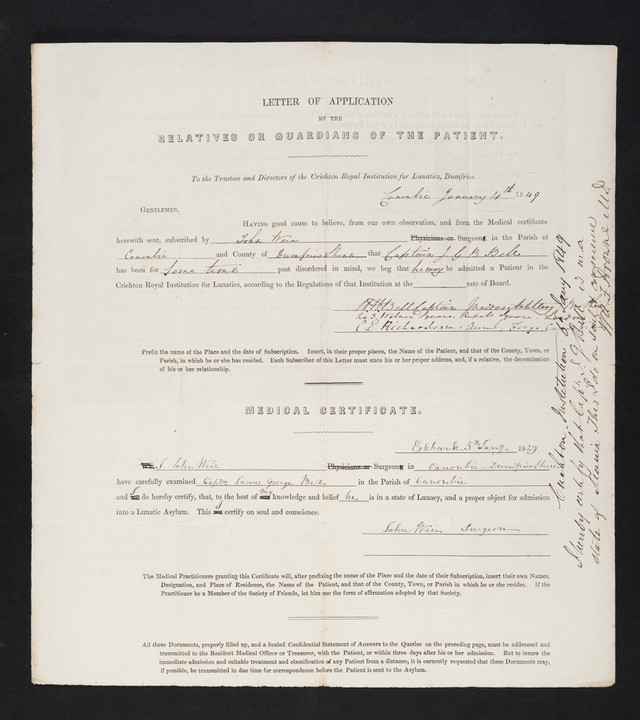 LETTER OF APPLICATION
BY THE
RELATIVES OR GUARDIANS OF THE PATIENT.
To the Trustees and Directors of the Crichton Royal Institution for Lunatics, Dumfries.
Canonbie January 4th 1849
GENTLEMEN,
HAVING good cause to believe, from our own observation, and from the Medical certificate
herewith sent, subscribed by John Weir Physicians or Surgeons, in the Parish of
Canonbie and County of Dumfries Shire that Captain J. G. B. Bell
has been for Some time past disordered in mind, we beg that he may be admitted a Patient in the
Crichton Royal Institution for Lunatics, according to the Regulations of that Institution at the rate of Board.
Bell Captain Madras Artillery
No 3, Square, Square
C. E. Richardson
Prefix the name of the Place and the date of Subscription. Insert, in their proper places, the Name of the Patient, and that of the County, Town, or
Parish, in which he or she has resided. Each Subscriber of this Letter must state his or her proper address, and, if a relative, the denomination
of his or her relationship.
MEDICAL CERTIFICATE.
Eskbank 5th Jany. 1849
We, I John Weir Physicians or Surgeons, in Canonbie Dumfriesshire
have carefully examined Captn James George Bell in the Parish of Canonbie
and I do hereby certify, that, to the best of my knowledge and belief he is in a state of Lunacy, and a proper object for admission
into a Lunatic Asylum. This I certify on soul and conscience.
John Weir Surgeon
The Medical Practitioners granting this Certificate will, after prefixing the name of the Place and the date of their Subscription, insert their own Names,
Designation, and Place of Residence, the Name of the Patient, and that of the County, Town, or Parish in which he or she resides. If the
Practitioner be a Member of the Society of Friends, let him use the form of affirmation adopted by that Society.
All these Documents, properly filled up, and a Sealed Confidential Statement of Answers to the Queries on the preceding page, must be addressed and
transmitted to the Resident Medical Officer or Treasurer, with the Patient, or within three days after his or her admission. But to insure the
immediate admission and suitable treatment and classification of any Patient from a distance, it is earnestly requested that these Documents may,
if possible, be transmitted in due time for correspondence before the Patient is sent to the Asylum.
Crichton Institution Jany 1849
I hereby certify that Captn J. G. Bell is in a
state of Mania. This I do on soul & conscience
W. A. F. Browne M.D.